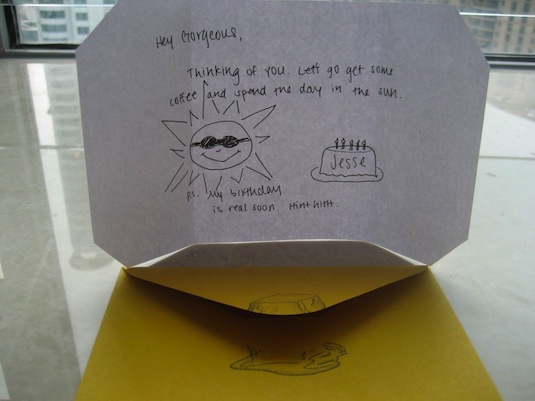 Hey Gorgeous,
Thinking of you. Let's go get some
coffee and spend the day in the sun.
Jesse
P.S. My birthday
is real soon. Hint hint.